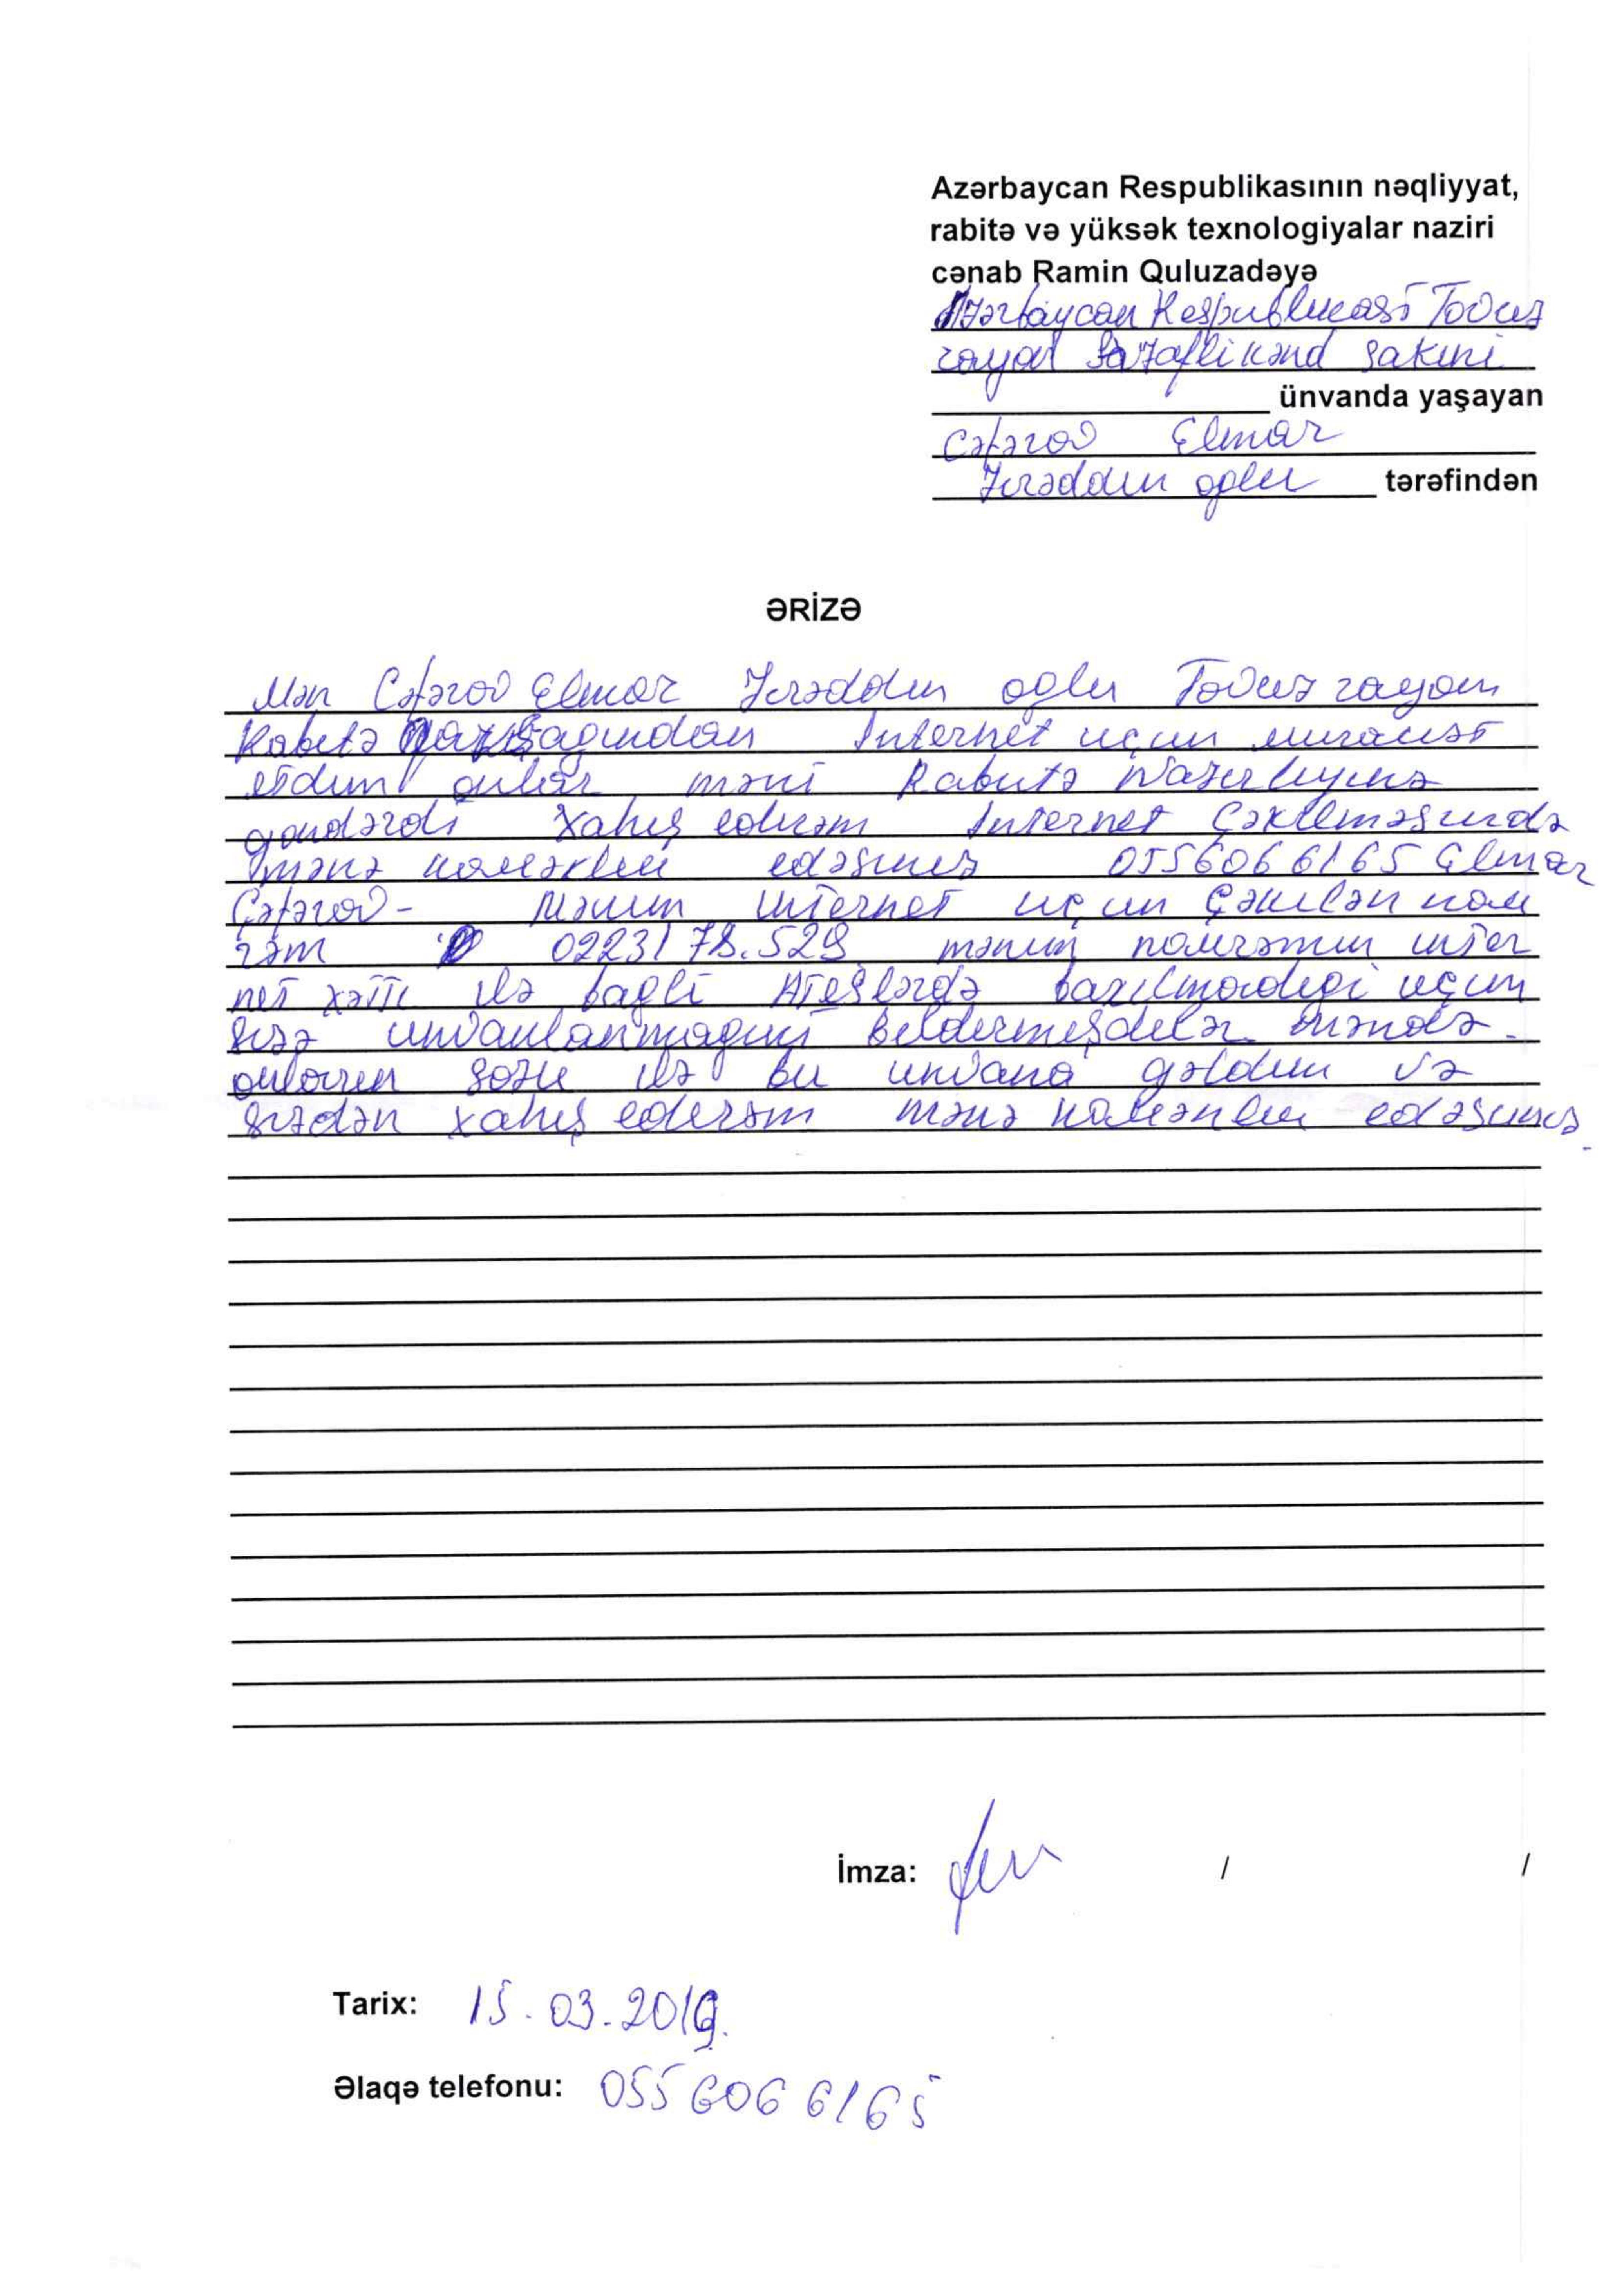 Azərbaycan Respublikasının nəqliyyat,
rabitə və yüksək texnologiyalar naziri
cənab Ramin Quluzadəyə
Azərbaycan Respublikasi Tovuz
rayon kənd sakini
ünvanda yaşayan
Cəfərov Elmar
oglu tərəfindən
ƏRİZƏ
Mən Cəfərov Elmar oglu Tovuz rayon
Rabitə internet uçun muraciət
etdim onlar məni Rabitə Nazirliyinə
gondərdi Xahiş edirəm internet çəkilməsində
mənə koməklik edəsiniz 0556066165 Elmar
Cəfərov- Mənim internet uçun çəkilən nom
rəm 0223178.529 mənim nomrəmin inter
net xətti ilə bagli uçun
sizə unvanlanmagimi bildirmişdilər məndə
onlarin sozu ilə bu unvana gəldim və
sizdən xahiş edirəm mənə koməklik edəsiniz
İmza: / /
Tarix: 15.03.2019.
Əlaqə telefonu: 055 606 6165